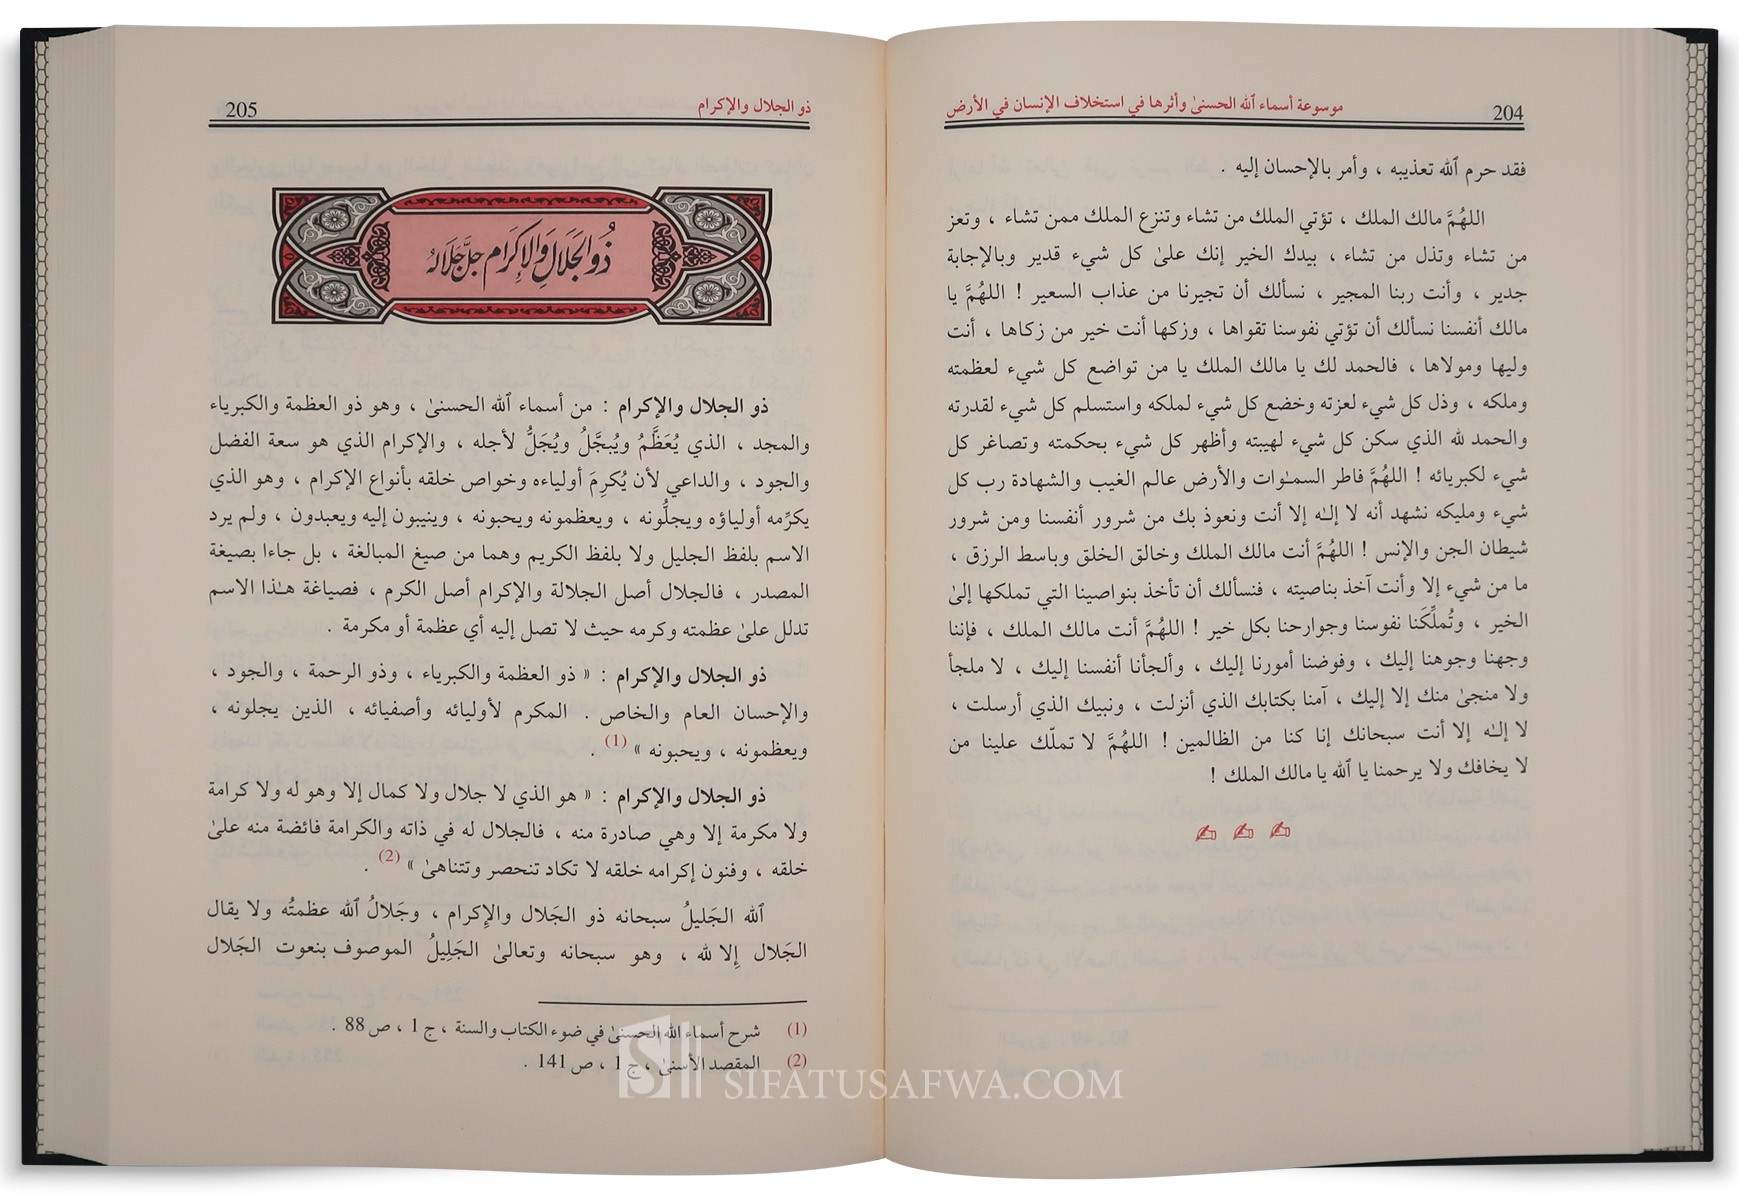 204
موسوعة أسماء الله الحسنىٰ وأثرها في استخلاف الإنسان في الأرض
فقد حرم الله تعذيبه ، وأمر بالإحسان إليه .
اللهُمَّ مالك الملك ، تؤتي الملك من تشاء وتنزع الملك ممن تشاء ، وتعز
من تشاء وتذل من تشاء ، بيدك الخير إنك علىٰ كل شيء قدير وبالإجابة
جدير ، وأنت ربنا المجير ، نسألك أن تجيرنا من عذاب السعير ! اللهُمَّ يا
مالك أنفسنا نسألك أن تؤتي نفوسنا تقواها ، وزكها أنت خير من زكاها ، أنت
وليها ومولاها ، فالحمد لك يا مالك الملك يا من تواضع كل شيء لعظمته
وملكه ، وذل كل شيء لعزته وخضع كل شيء لملكه واستسلم كل شيء لقدرته
والحمد لله الذي سكن كل شيء لهيبته وأظهر كل شيء بحكمته وتصاغر كل
شيء لكبريائه ! اللهُمَّ فاطر السمـٰوات والأرض عالم الغيب والشهادة رب كل
شيء ومليكه نشهد أنه لا إلـٰه إلا أنت ونعوذ بك من شرور أنفسنا ومن شرور
شيطان الجن والإنس ! اللهُمَّ أنت مالك الملك وخالق الخلق وباسط الرزق ،
ما من شيء إلا وأنت آخذ بناصيته ، فنسألك أن تأخذ بنواصينا التي تملكها إلىٰ
الخير ، وتُملِّكَنا نفوسنا وجوارحنا بكل خير ! اللهُمَّ أنت مالك الملك ، فإننا
وجهنا وجوهنا إليك ، وفوضنا أمورنا إليك ، وألجأنا أنفسنا إليك ، لا ملجأ
ولا منجىٰ منك إلا إليك ، آمنا بكتابك الذي أنزلت ، ونبيك الذي أرسلت ،
لا إلـٰه إلا أنت سبحانك إنا كنا من الظالمين ! اللهُمَّ لا تملّك علينا من
لا يخافك ولا يرحمنا يا الله يا مالك الملك !
ذو الجلال والإكرام
205
ذُو الجَلَالِ وَالإِكرَام جلَّ جَلَالهُ
ذو الجلال والإكرام : من أسماء الله الحسنىٰ ، وهو ذو العظمة والكبرياء
والمجد ، الذي يُعَظَّمُ ويُبجَّلُ ويُجَلُّ لأجله ، والإكرام الذي هو سعة الفضل
والجود ، والداعي لأن يُكرِمَ أولياءه وخواص خلقه بأنواع الإكرام ، وهو الذي
يكرِّمه أولياؤه ويجلُّونه ، ويعظمونه ويحبونه ، وينيبون إليه ويعبدون ، ولم يرد
الاسم بلفظ الجليل ولا بلفظ الكريم وهما من صيغ المبالغة ، بل جاءا بصيغة
المصدر ، فالجلال أصل الجلالة والإكرام أصل الكرم ، فصياغة هـٰذا الاسم
تدلل علىٰ عظمته وكرمه حيث لا تصل إليه أي عظمة أو مكرمة .
ذو الجلال والإكرام : « ذو العظمة والكبرياء ، وذو الرحمة ، والجود ،
والإحسان العام والخاص . المكرم لأوليائه وأصفيائه ، الذين يجلونه ،
ويعظمونه ، ويحبونه » (1) .
ذو الجلال والإكرام : « هو الذي لا جلال ولا كمال إلا وهو له ولا كرامة
ولا مكرمة إلا وهي صادرة منه ، فالجلال له في ذاته والكرامة فائضة منه علىٰ
خلقه ، وفنون إكرامه خلقه لا تكاد تنحصر وتتناهىٰ » (2) .
الله الجَليلُ سبحانه ذو الجَلال والإكرام ، وجَلالُ الله عظمتُه ولا يقال
الجَلال إلا لله ، وهو سبحانه وتعالىٰ الجَلِيلُ الموصوف بنعوت الجَلال
(1) شرح أسماء الله الحسنىٰ في ضوء الكتاب والسنة ، ج 1 ، ص 88 .
(2) المقصد الأسنىٰ ، ج 1 ، ص 141 .
SIFATUSAFWA.COM